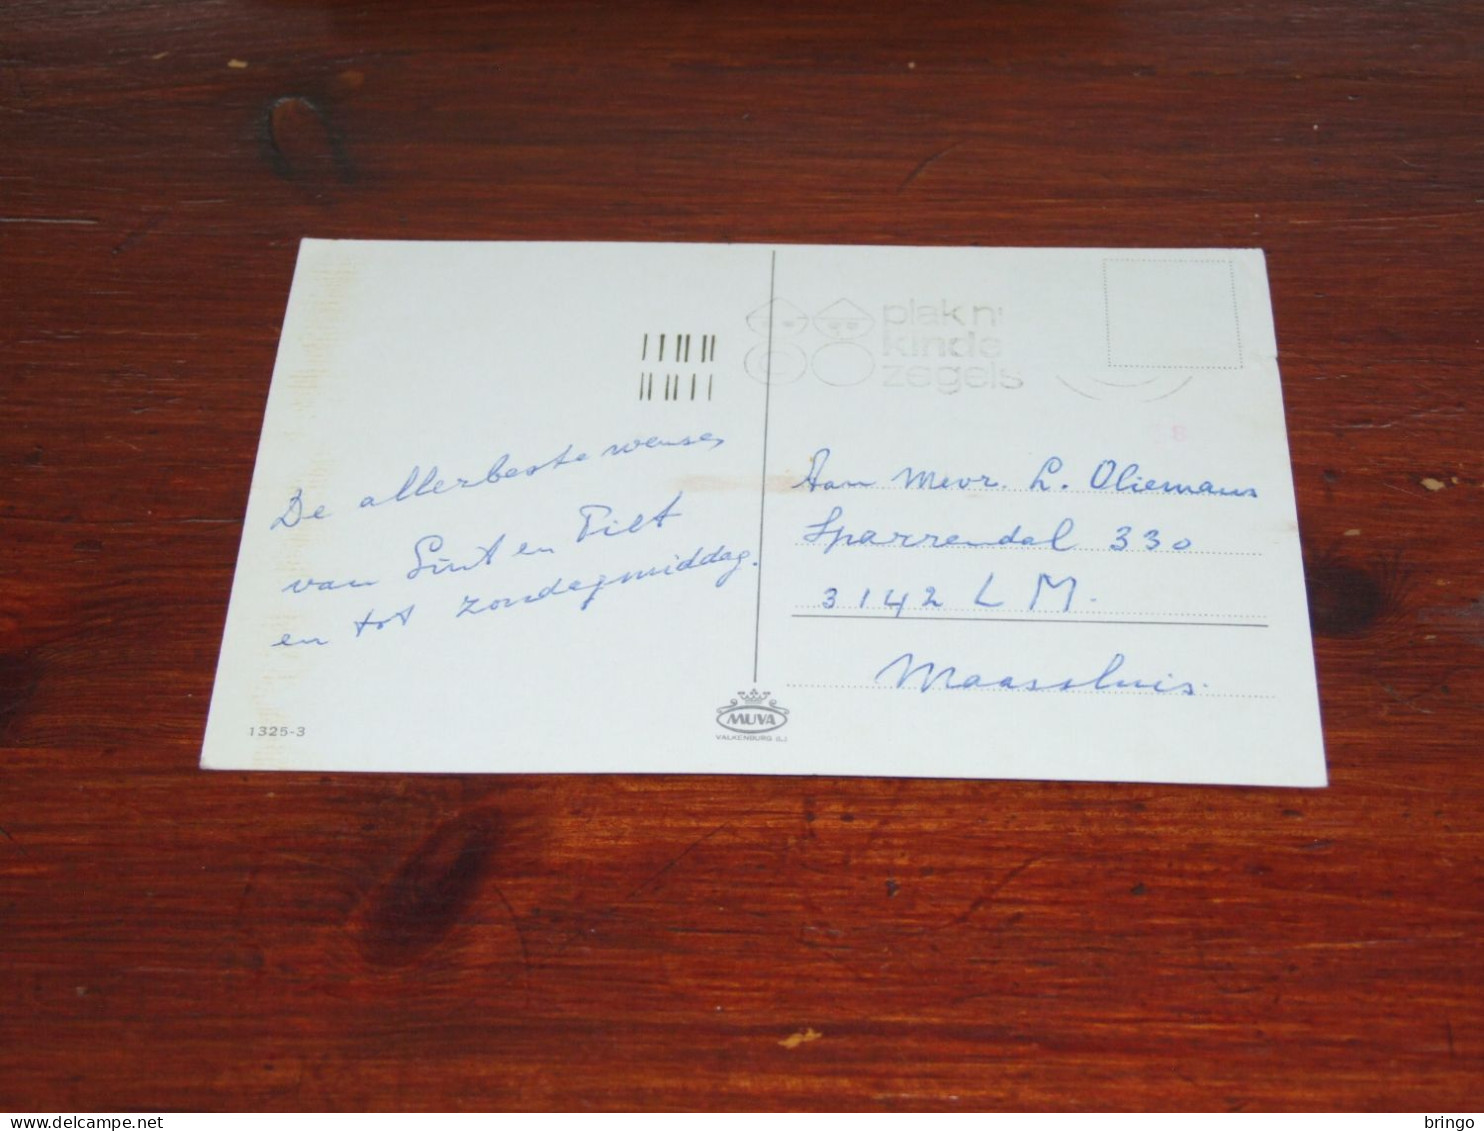 plak n
kinde
zegels
De allerbeste wensen
van Sint en Piet
en tot zondagmiddag.
Aan Mevr. L. Oliemans
Sparrendal 330
3142 LM.
Maassluis.
1325-3
MUVA
VALKENBURG (L.)
8
delcampe.net
bringo